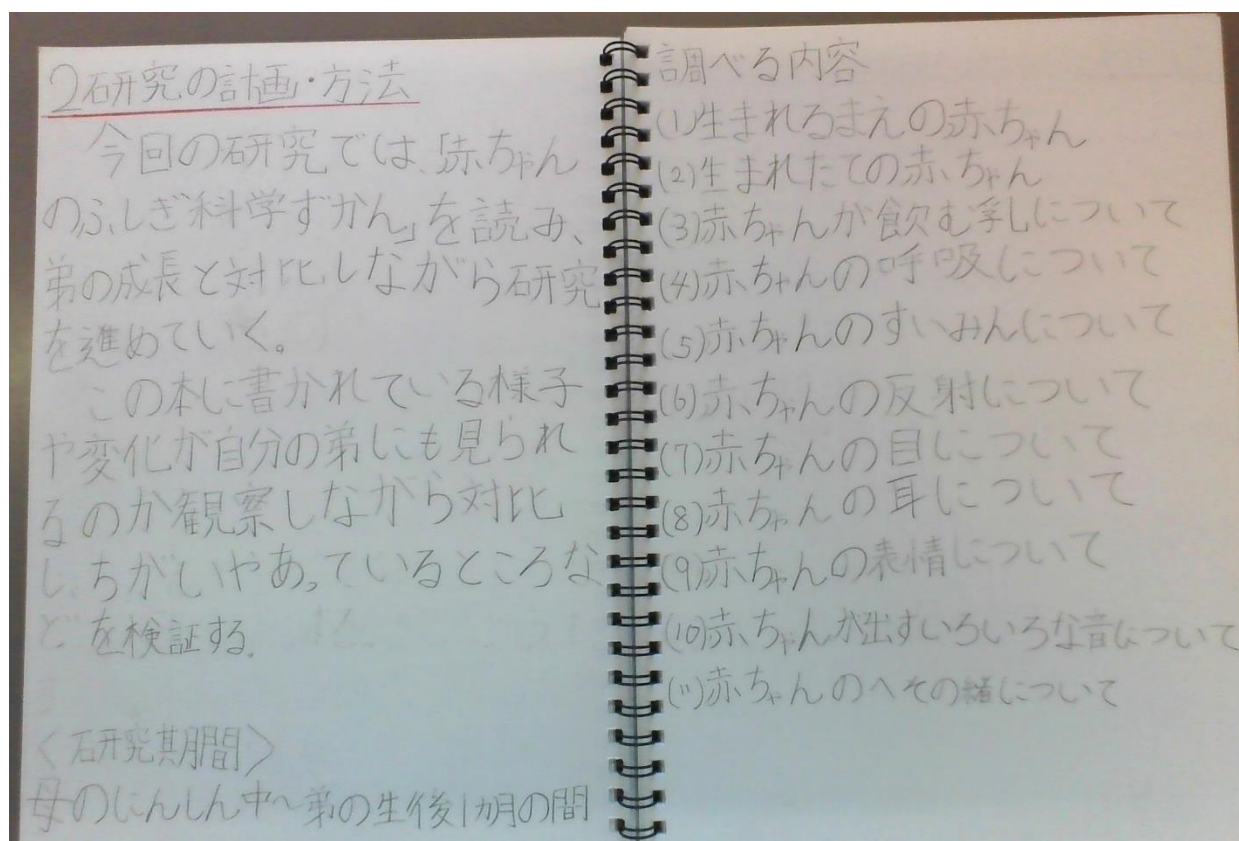 2研究の計画・方法
今回の研究では、「赤ちゃん
のふしぎ科学ずかん」を読み、
弟の成長と対比しながら研究
を進めていく。
この本に書かれている様子
や変化が自分の弟にも見られ
るのか観察しながら対比
し、ちがいやあっているところな
どを検証する。
〈研究期間〉
母のにんしん中~弟の生後1ヵ月の間
調べる内容
(1)生まれるまえの赤ちゃん
(2)生まれたての赤ちゃん
(3)赤ちゃんが飲む乳について
(4)赤ちゃんの呼吸について
(5)赤ちゃんのすいみんについて
(6)赤ちゃんの反射について
(7)赤ちゃんの目について
(8)赤ちゃんの耳について
(9)赤ちゃんの表情について
(10)赤ちゃんが出すいろいろな音について
(11)赤ちゃんのへその緒について